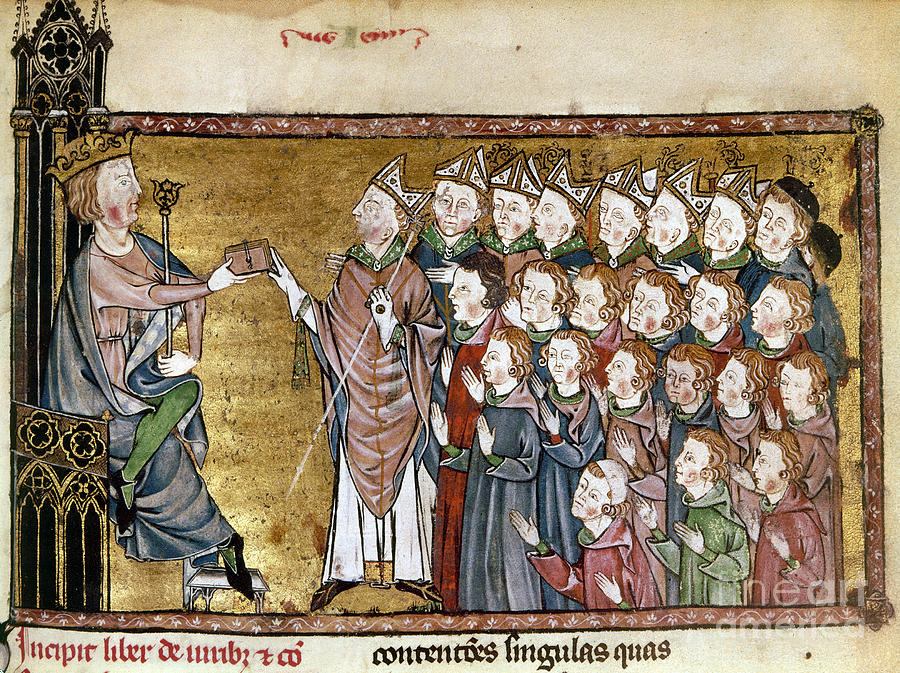 Incipit liber de iuribꝫ ⁊ cō
contentōes singulas quas
fine art
america